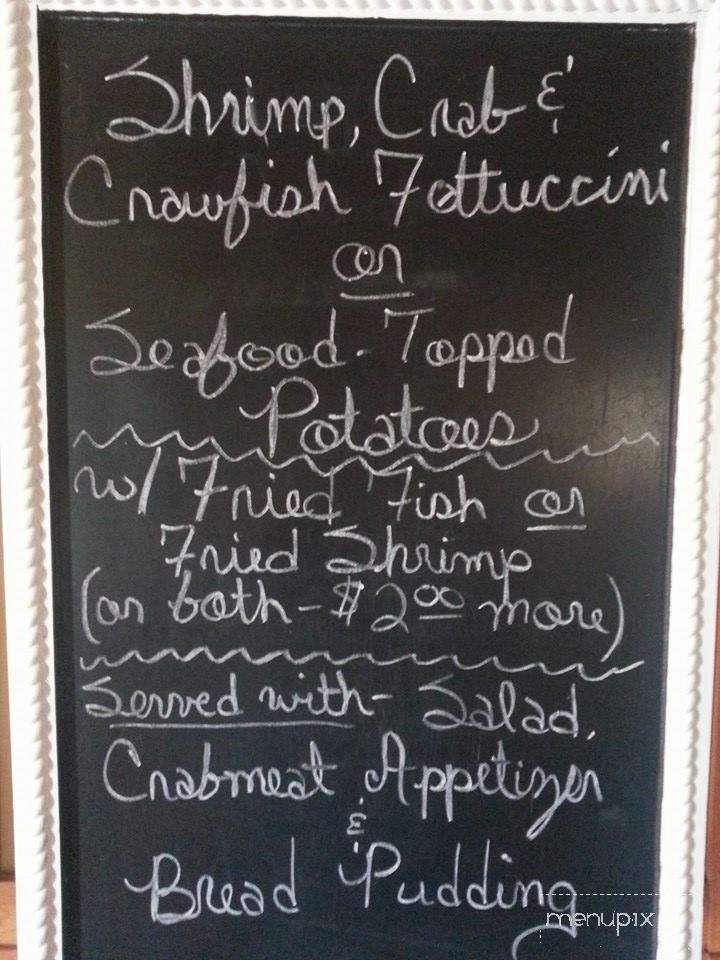 Shrimp, Crab &
Crawfish Fettuccini
or
Seafood-Topped
Potatoes
w/ Fried Fish or
Fried Shrimp
(or both - $2.00 more)
Served with - Salad,
Crabmeat Appetizer
&
Bread Pudding
menupix